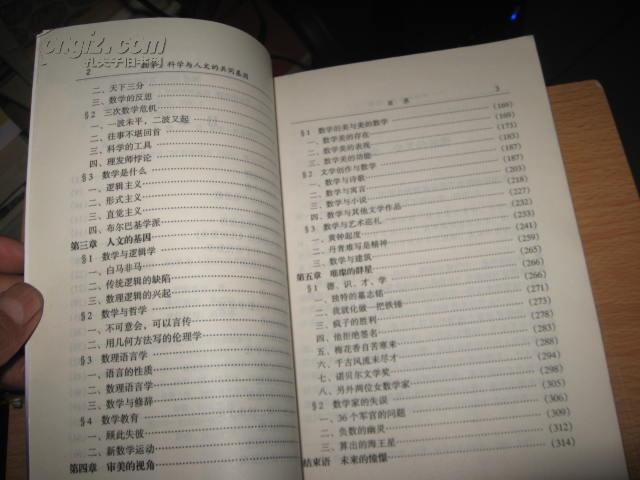 kongfz.com
孔夫子旧书网
2 数学：科学与人文的共同基因
二、天下三分
三、数学的反思
§2 三次数学危机
一、一波未平，二波又起
二、往事不堪回首
三、科学的工具
四、理发师悖论
§3 数学是什么
一、逻辑主义
二、形式主义
三、直觉主义
四、布尔巴基学派
第三章 人文的基因
§1 数学与逻辑学
一、白马非马
二、传统逻辑的缺陷
三、数理逻辑的兴起
§2 数学与哲学
一、不可意会，可以言传
二、用几何方法写的伦理学
§3 数理语言学
一、语言的性质
二、数理语言学
三、数学与修辞
§4 数学教育
一、顾此失彼
二、新数学运动
第四章 审美的视角
目录 3
§1 数学的美与美的数学 (169)
一、数学美的存在 (169)
二、数学美的表现 (175)
三、数学美的功能 (183)
§2 文学创作与数学 (187)
一、数学与诗歌 (187)
二、数学与寓言 (203)
三、数学与小说 (218)
四、数学与其他文学作品 (225)
§3 数学与艺术巡礼 (233)
一、黄钟起度 (233)
二、丹青难写是精神 (241)
三、数学与建筑 (259)
第五章 璀璨的群星 (265)
§1 德、识、才、学 (266)
一、独特的墓志铭 (266)
二、我就化做一把铁锤 (271)
三、疯子的胜利 (273)
四、他拒绝签名 (278)
五、梅花香自苦寒来 (281)
六、千古风流未尽才 (285)
七、诺贝尔文学奖 (288)
八、另外两位女数学家 (294)
§2 数学家的失误 (305)
一、36个军官的问题 (306)
二、负数的幽灵 (309)
三、算出的海王星 (312)
结束语 未来的憧憬 (314)